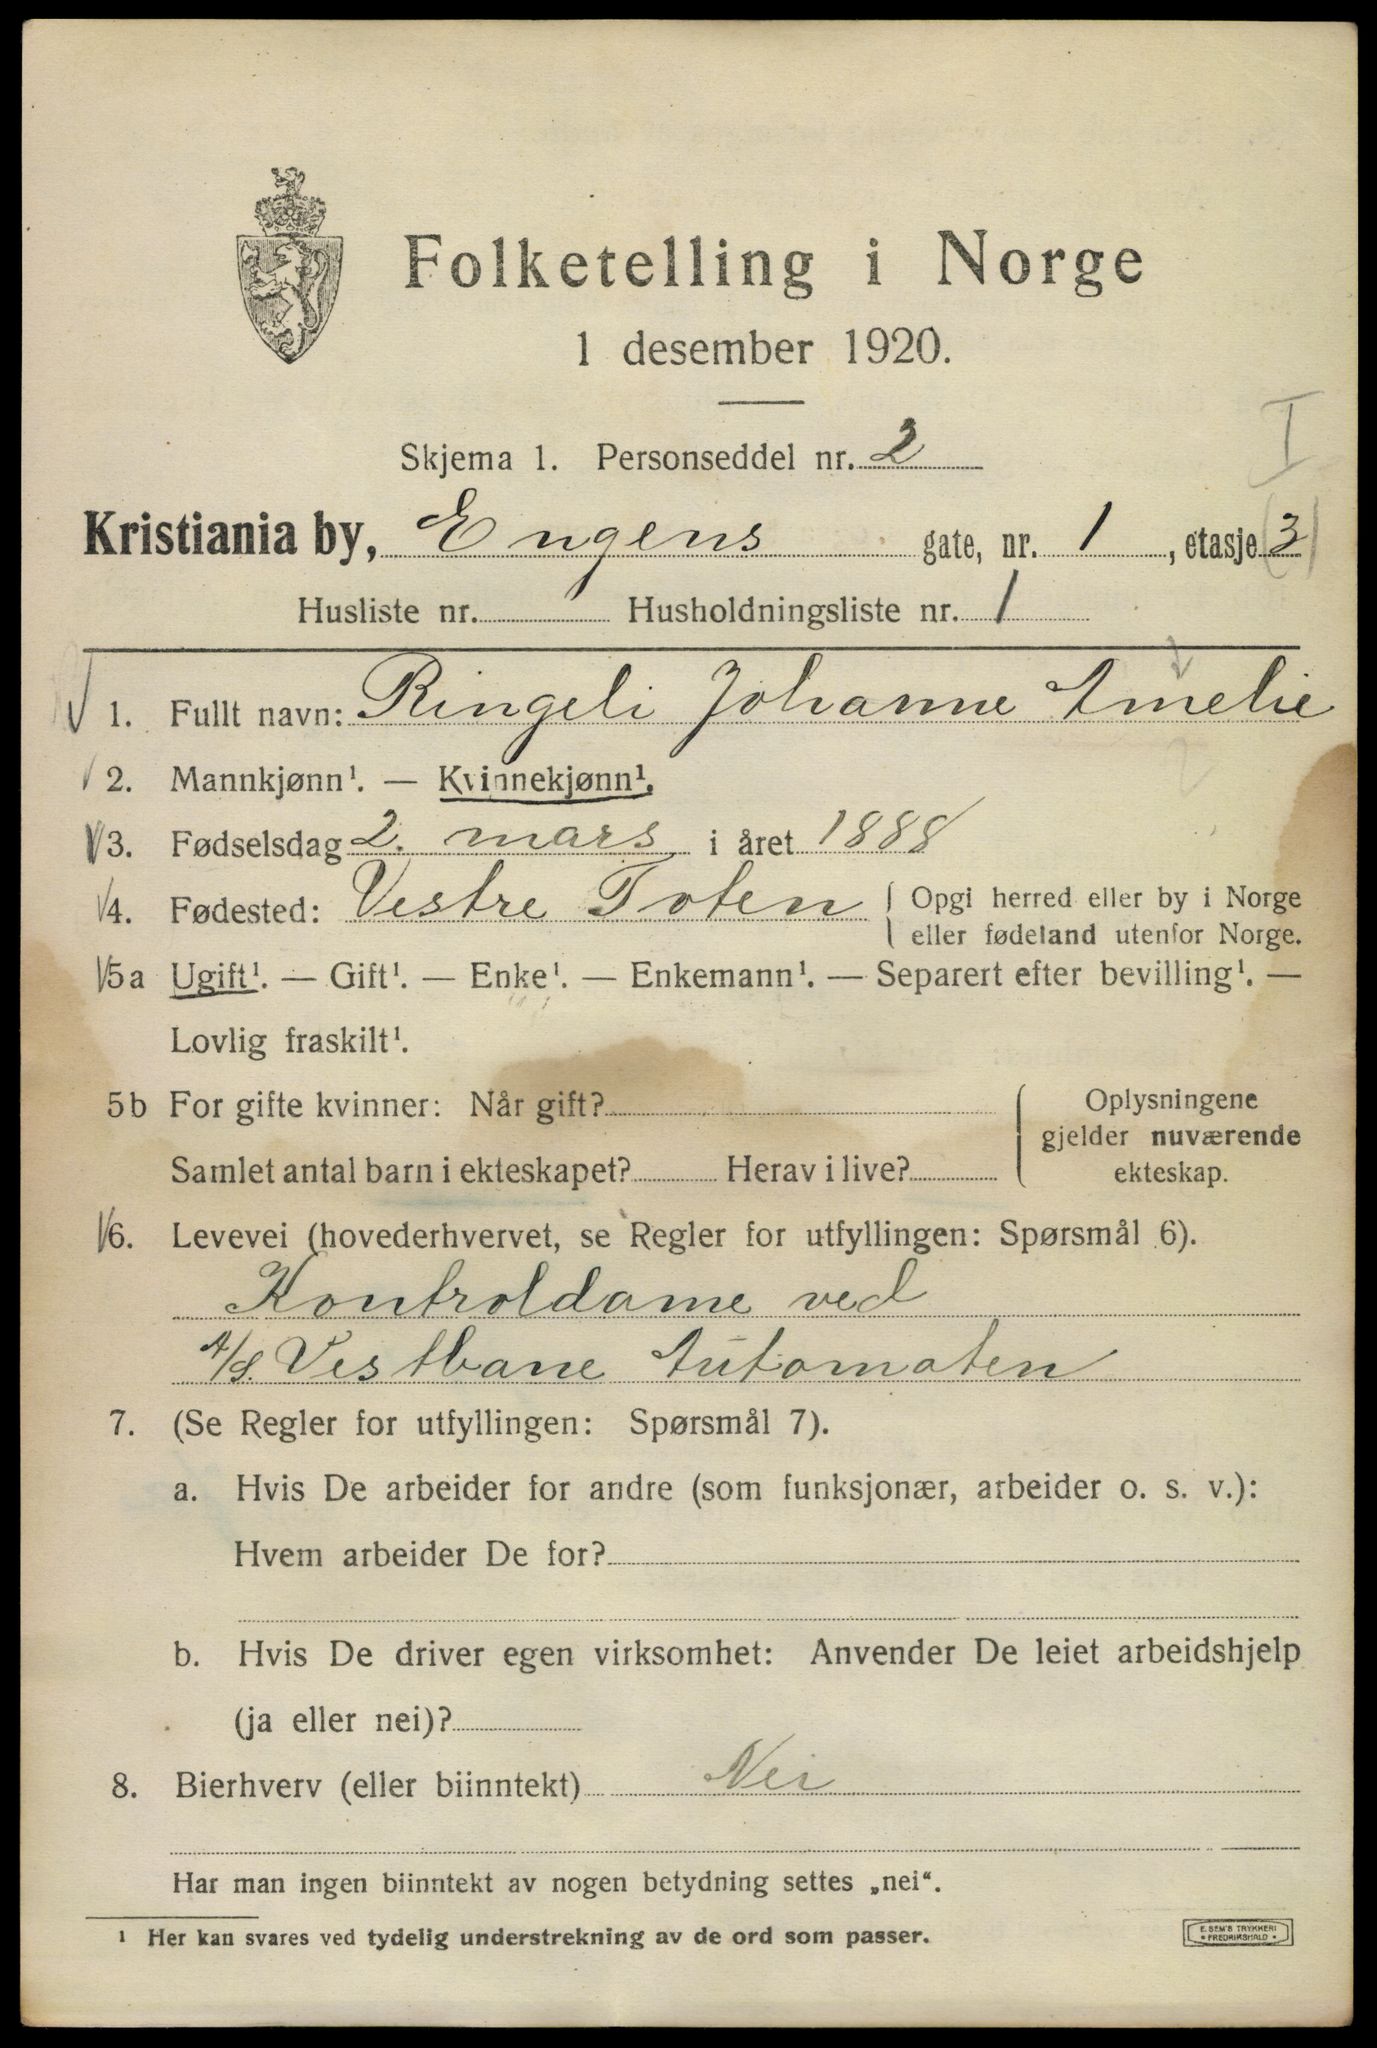 Folketelling i Norge
1 desember 1920.
I
Skjema 1. Personseddel nr. 2
Kristiania by, Engens gate, nr. 1, etasje (3)
Husliste nr. Husholdningsliste nr. 1
1. Fullt navn: Ringeli Johanne Amelie
2
2. Mannkjønn¹. — Kvinnekjønn¹.
3. Fødselsdag 2. mars i året 1888
4. Fødested: Vestre Toten { Opgi herred eller by i Norge
eller fødeland utenfor Norge.
5a Ugift¹. — Gift¹. — Enke¹. — Enkemann¹. — Separert efter bevilling¹. —
Lovlig fraskilt¹.
5b For gifte kvinner: Når gift? { Oplysningene
gjelder nuværende
Samlet antal barn i ekteskapet? Herav i live? ekteskap.
6. Levevei (hovederhvervet, se Regler for utfyllingen: Spørsmål 6).
Kontroldame ved
A/S. Vestbane Automaten
7. (Se Regler for utfyllingen: Spørsmål 7).
a. Hvis De arbeider for andre (som funksjonær, arbeider o. s. v.):
Hvem arbeider De for?
b. Hvis De driver egen virksomhet: Anvender De leiet arbeidshjelp
(ja eller nei)?
8. Bierhverv (eller biinntekt) Nei
Har man ingen biinntekt av nogen betydning settes „nei“.
¹ Her kan svares ved tydelig understrekning av de ord som passer.
E. SEM'S TRYKKERI
• FREDRIKSHALD •